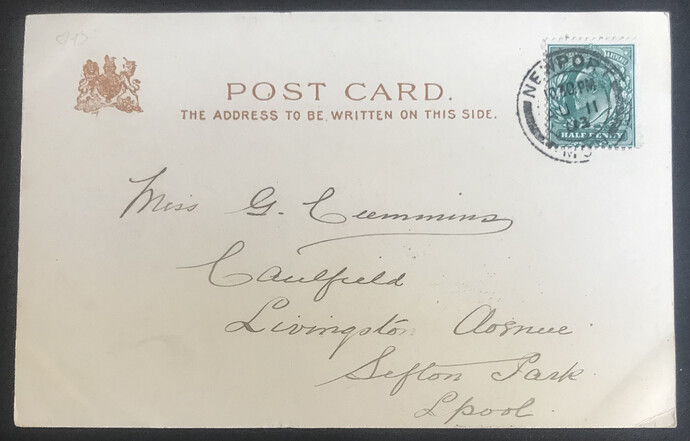 POST CARD.
THE ADDRESS TO BE WRITTEN ON THIS SIDE.
NEWPORT
30 PM
11
03
HALFPENNY
Miss G. Cummins
Caulfield
Livingston Avenue
Sefton Park
Lpool.